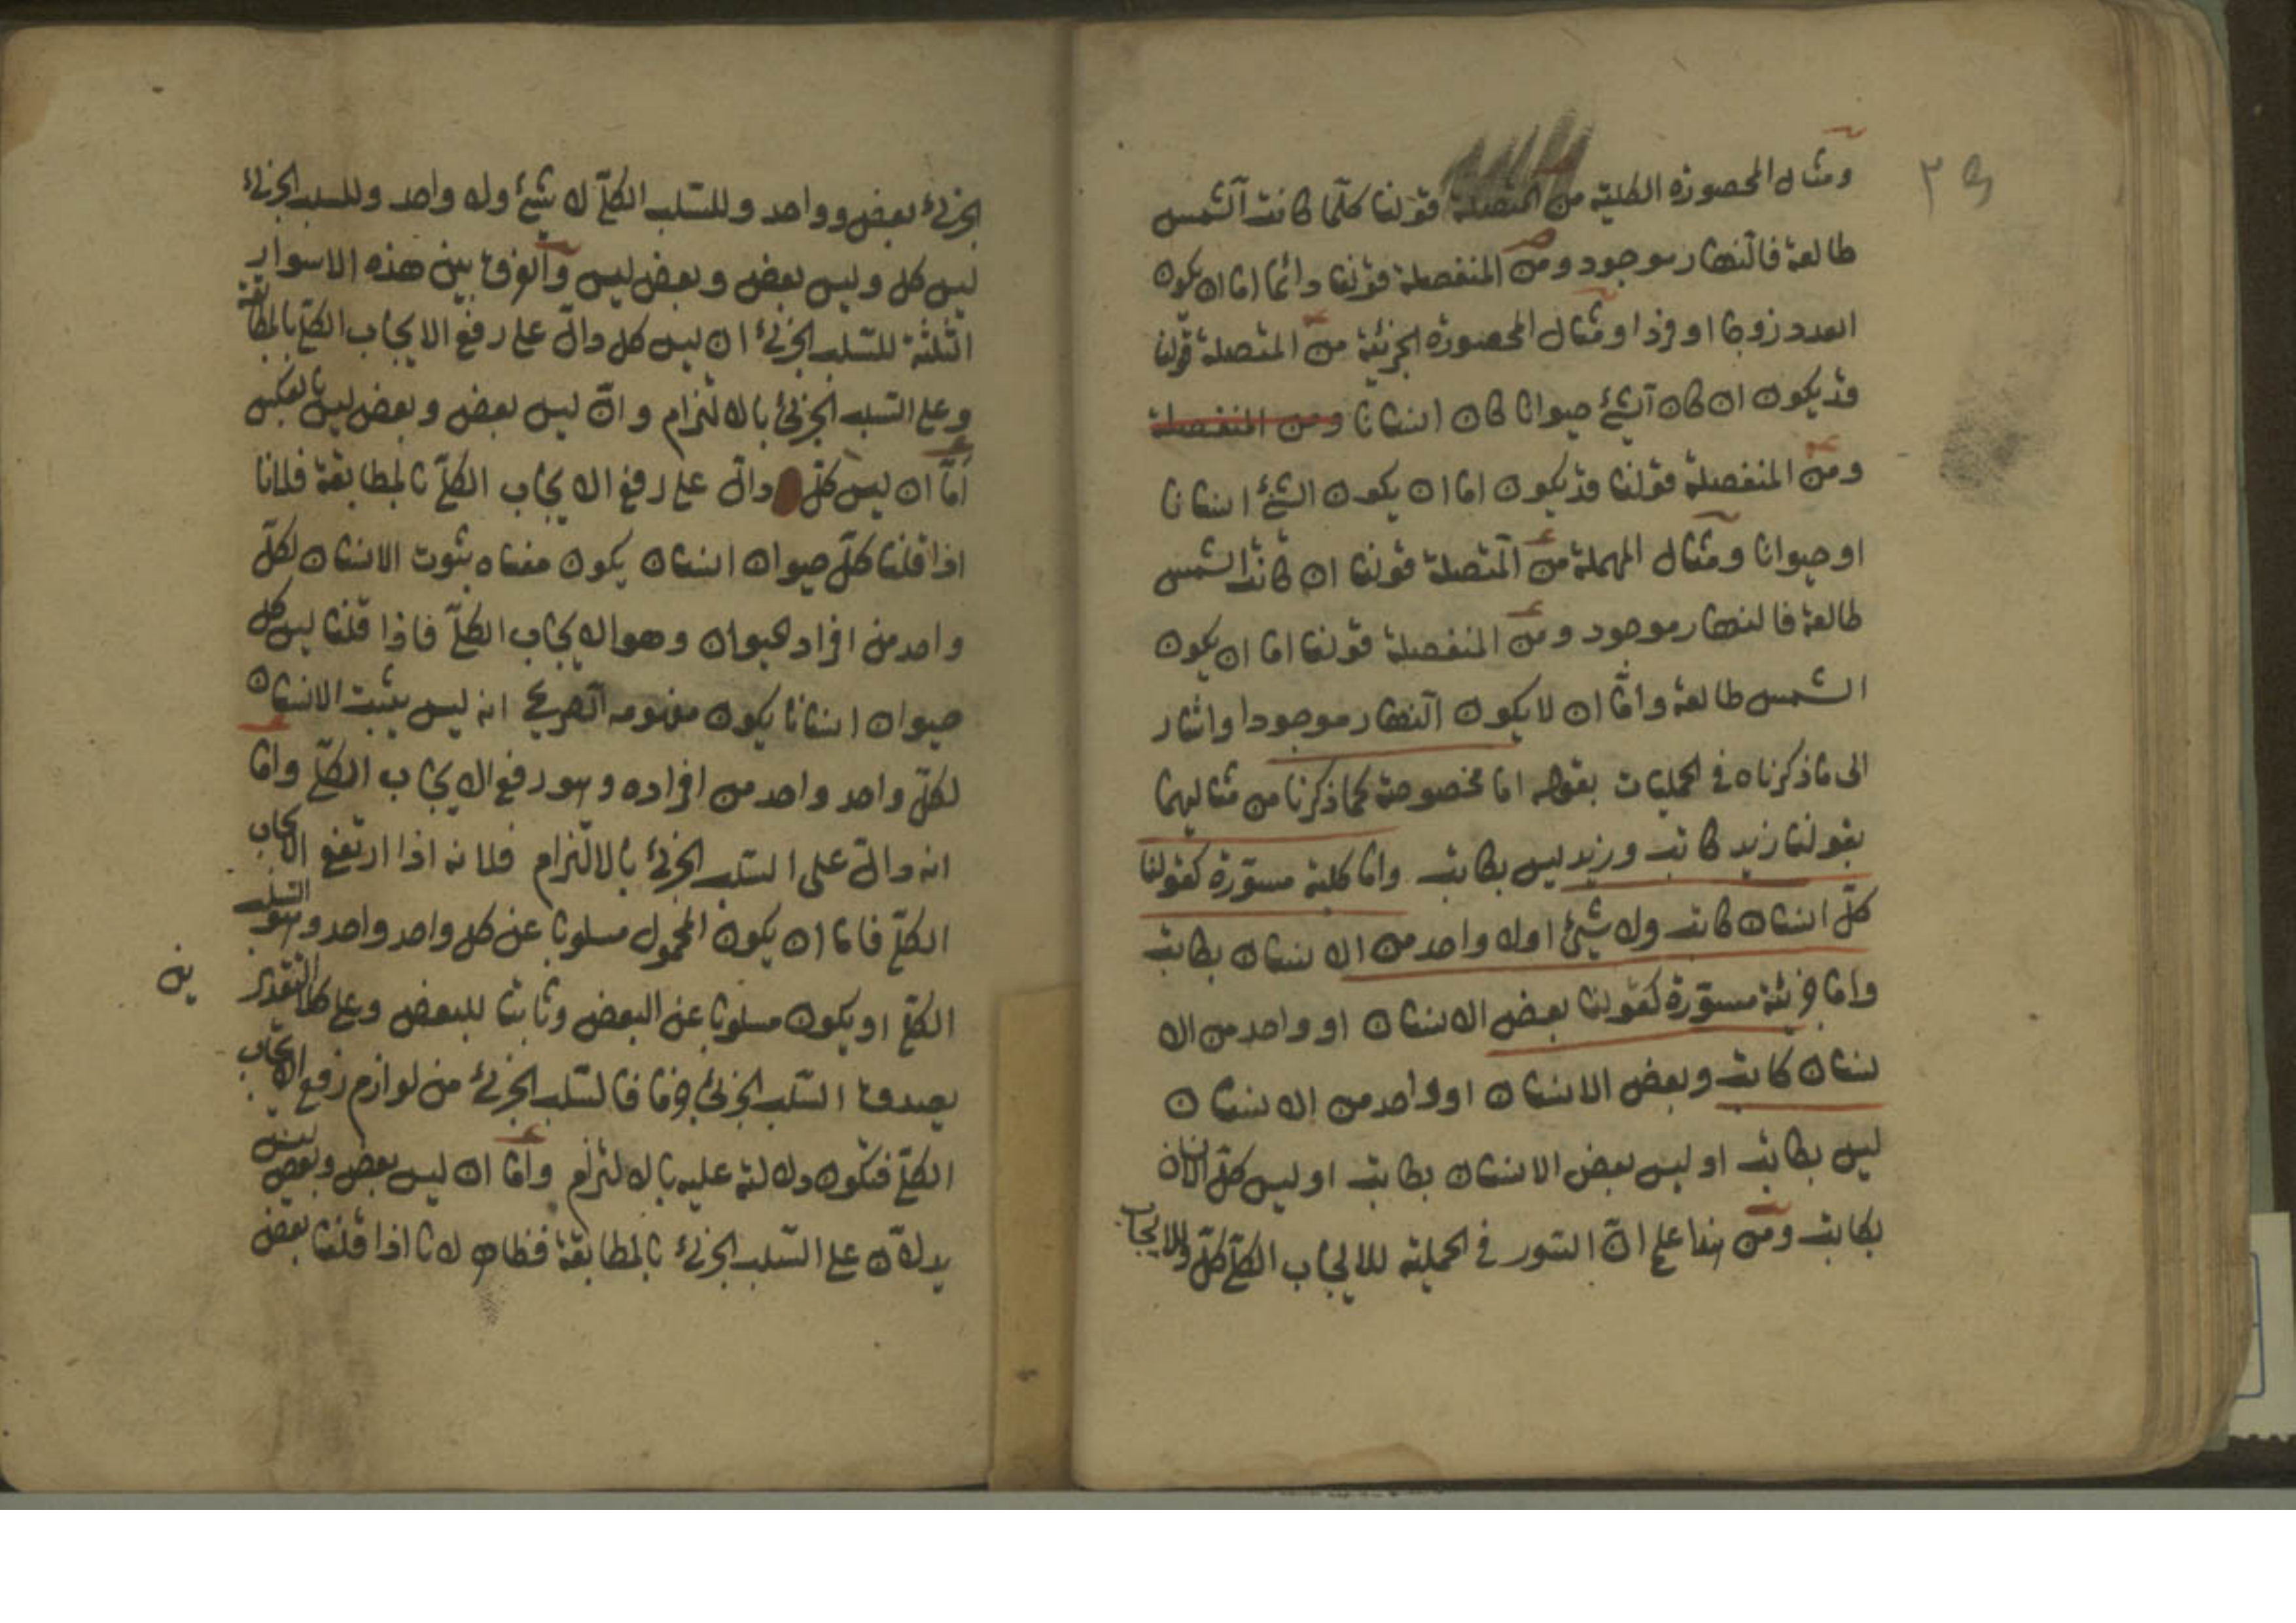 ومثال المحصورة الكلية من المتصلة قولنا كلّما كانت الشمس
طالعة فالنهار موجود ومن المنفصلة قولنا دائما اما ان يكون
العدد زوجا او فردا ومثال المحصورة الجزئية من المتصلة قولنا
قد يكون ان كان الشئ حيوانا كان انسانا ومن المنفصلة
ومن المنفصلة قولنا قد يكون اما ان يكون الشئ انسانا
او حيوانا ومثال المهملة من المتصلة قولنا ان كانت الشمس
طالعة فالنهار موجود ومن المنفصلة قولنا اما ان يكون
الشمس طالعة وامّا ان لا يكون النهار موجودا واشار
الى ما ذكرناه في الحمليات بقوله اما مخصوصة كما ذكرنا من مثاليهما
بقولنا زيد كاتب وزيد ليس بكاتب واما كلية مسوّرة كقولنا
كلّ انسان كاتب ولا شئ او لا واحد من الانسان بكاتب
واما جزئية مسوّرة كقولنا بعض الانسان او واحد من الا
نسان كاتب وبعض الانسان او واحد من الانسان
ليس بكاتب او ليس بعض الانسان بكاتب او ليس كلّ الانسان
بكاتب ومن هذا علم انّ السور في الحملية للايجاب الكلّي كلّ وللايجاب
٣٩
الجزئ بعض وواحد وللسّلب الكلّي لا شئ ولا واحد وللسلب الجزئ
ليس كل وليس بعض وبعض ليس والفرق بين هذه الاسوار
الثلثة للسّلب الجزئ ان ليس كل دالّ على رفع الايجاب الكلّي بالمطابقة
وعلى السّلب الجزئ بالالتزام وانّ ليس بعض وبعض ليس بالعكس
امّا ان ليس كلّ دالّ على رفع الايجاب الكلّي بالمطابقة فلانا
اذا قلنا كلّ حيوان انسان يكون معناه ثبوت الانسان لكلّ
واحد من افراد الحيوان وهو الايجاب الكلّي فاذا قلنا ليس كل
حيوان انسانا يكون مفهومه الصريح انه ليس يثبت الانسان
لكلّ واحد واحد من افراده وهو رفع الايجاب الكلّي واما
انه دالّ على السّلب الجزئ بالالتزام فلانه اذا ارتفع الايجاب
الكلّي فاما ان يكون المحمول مسلوبا عن كل واحد واحد وهو السّلب
الكلّي او يكون مسلوبا عن البعض وثابتا للبعض وعلى كلا التقدير
ين
يصدق السّلب الجزئي جزما فالسّلب الجزئ من لوازم رفع الايجاب
الكلّي فتكون دلالته عليه بالالتزام واما ان ليس بعض وبعض ليس
يدلّان على السّلب الجزئ بالمطابقة فظاهر لانا اذا قلنا بعض